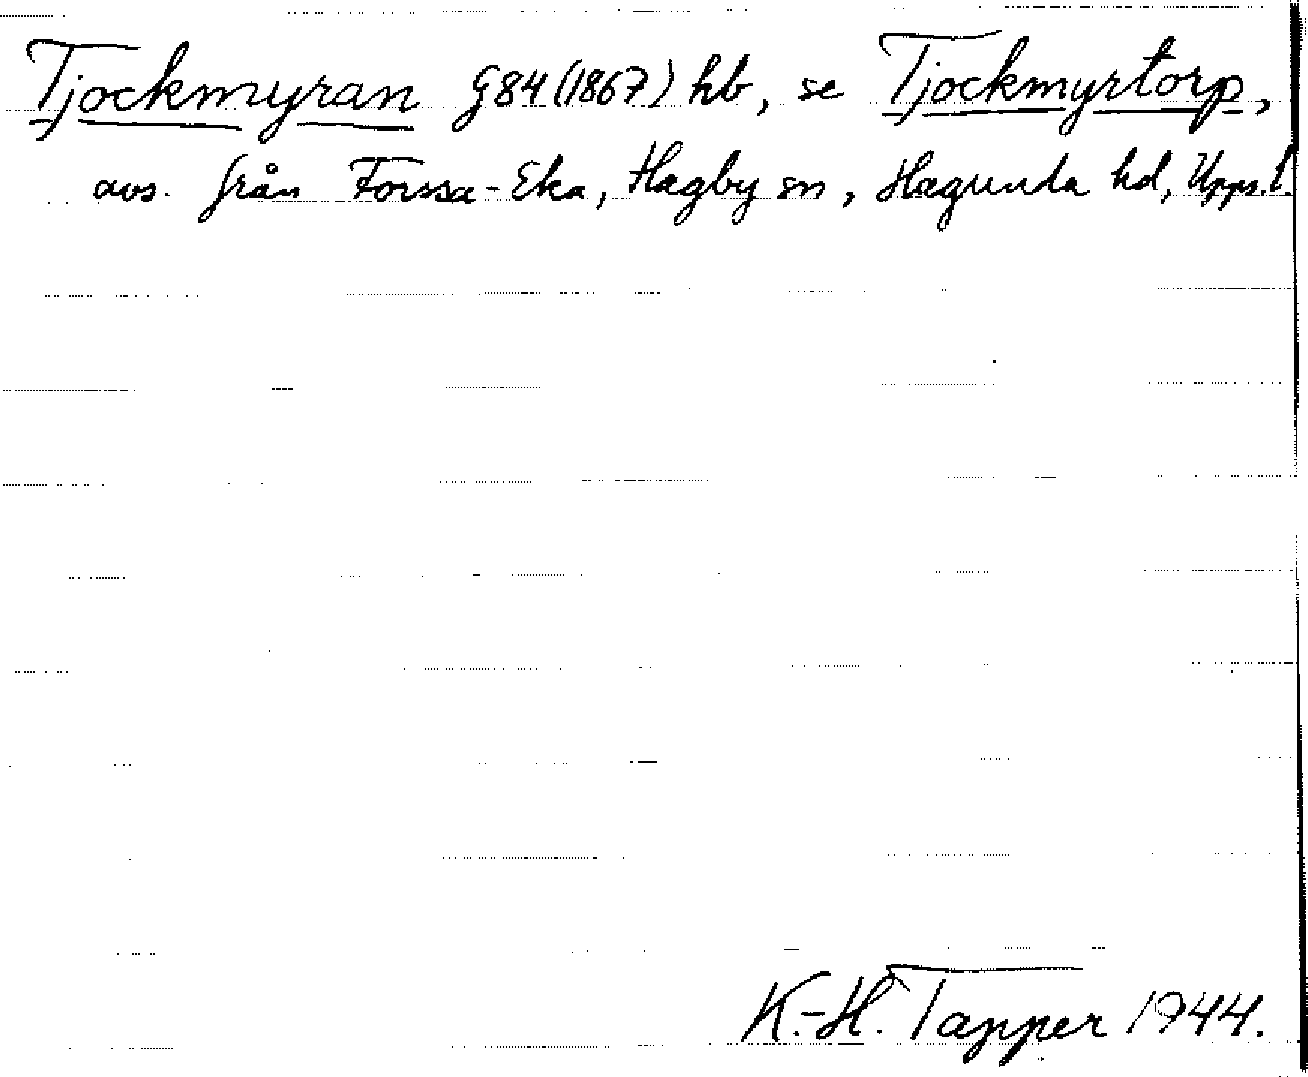 Tjockmyran G84 (1867) hb, se Tjockmyrtorp,
avs. från Forssa-Eka, Hagby sn, Hagunda hd, Upps. l.
K.-H. Tapper 1944.